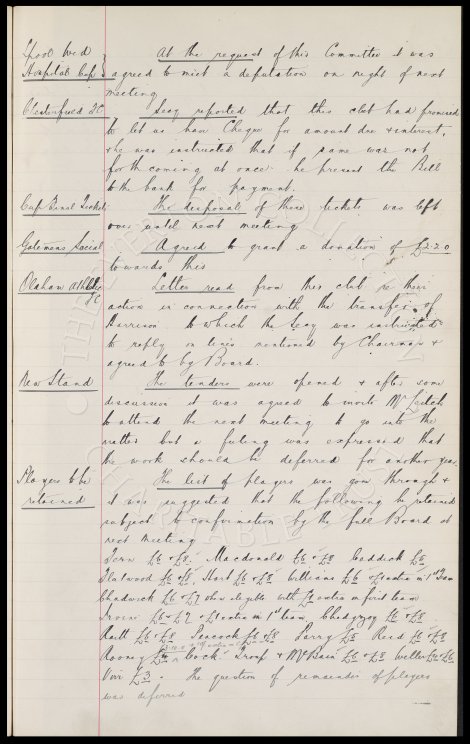 L'pool Wed
Hospital Cup } At the request of this Committee it was
agreed to meet a deputation on night of next
meeting
Chesterfield FC Secy reported that this club had promised
to let us have Cheque for amount due & interest,
& he was instructed that if same was not
forthcoming at once he present the Bill
to the bank for payment.
Cup Final Tickets The disposal of these tickets was left
over until next meeting
Gatemens Social Agreed to grant a donation of £2-2-0
towards this
Oldham Athletic
FC Letter read from this club re their
action in connection with the transfer of
Harrison to which the Secy was instructed
to reply on lines mentioned by Chairman &
agreed to by Board.
New Stand The tenders were opened & after some
discussion it was agreed to invite Mr Leitch
to attend the next meeting to go into the
matter but a feeling was expressed that
the work should be deferred for another year.
Players to be
retained The list of players was gone through &
it was suggested that the following be retained
subject to confirmation by the full Board at
next meeting
Fern £6 & £8. Macdonald £6 & £8 Caddick £6
Fleetwood £6 & £8, Hart £6 & £8 Williams £6 & £1 extra in 1st Team
Chadwick £6 & £7 when eligible with £1 extra in first team
Irvine £6 & £7 & £1 extra in 1st team, Chedgzoy £6 & £8
Raitt £6 & £8 Peacock £6 & £8 Parry £5 Reid £6 & £8
Rooney Cock, Troup & McBain £6 & £8 Weller £4 & £6
Virr £3. the question of remainder of players
was deferred